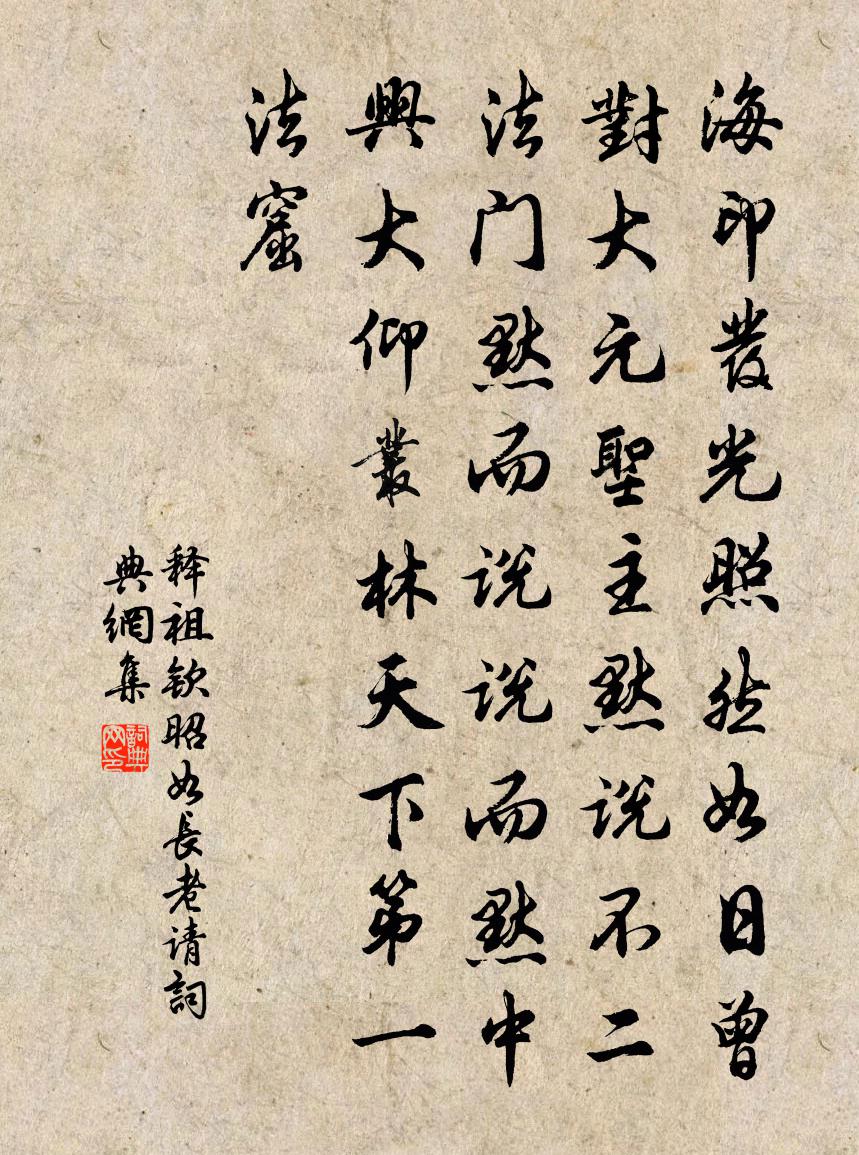 海印發光照然如日曾
對大元聖主默說不二
法门默而说说而默中
興大仰叢林天下第一
法窟
释祖钦昭如長老请詞
典網集
詞典网印